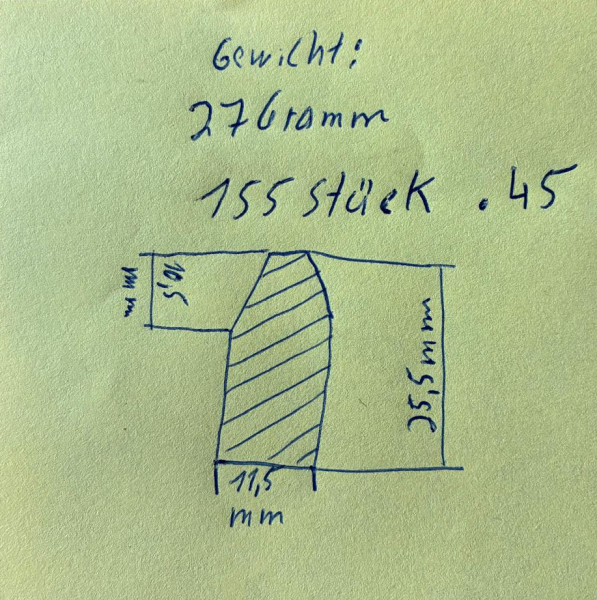 Gewicht:
27 Gramm
155 Stück .45
10,5
mm
25,5 mm
11,5
mm